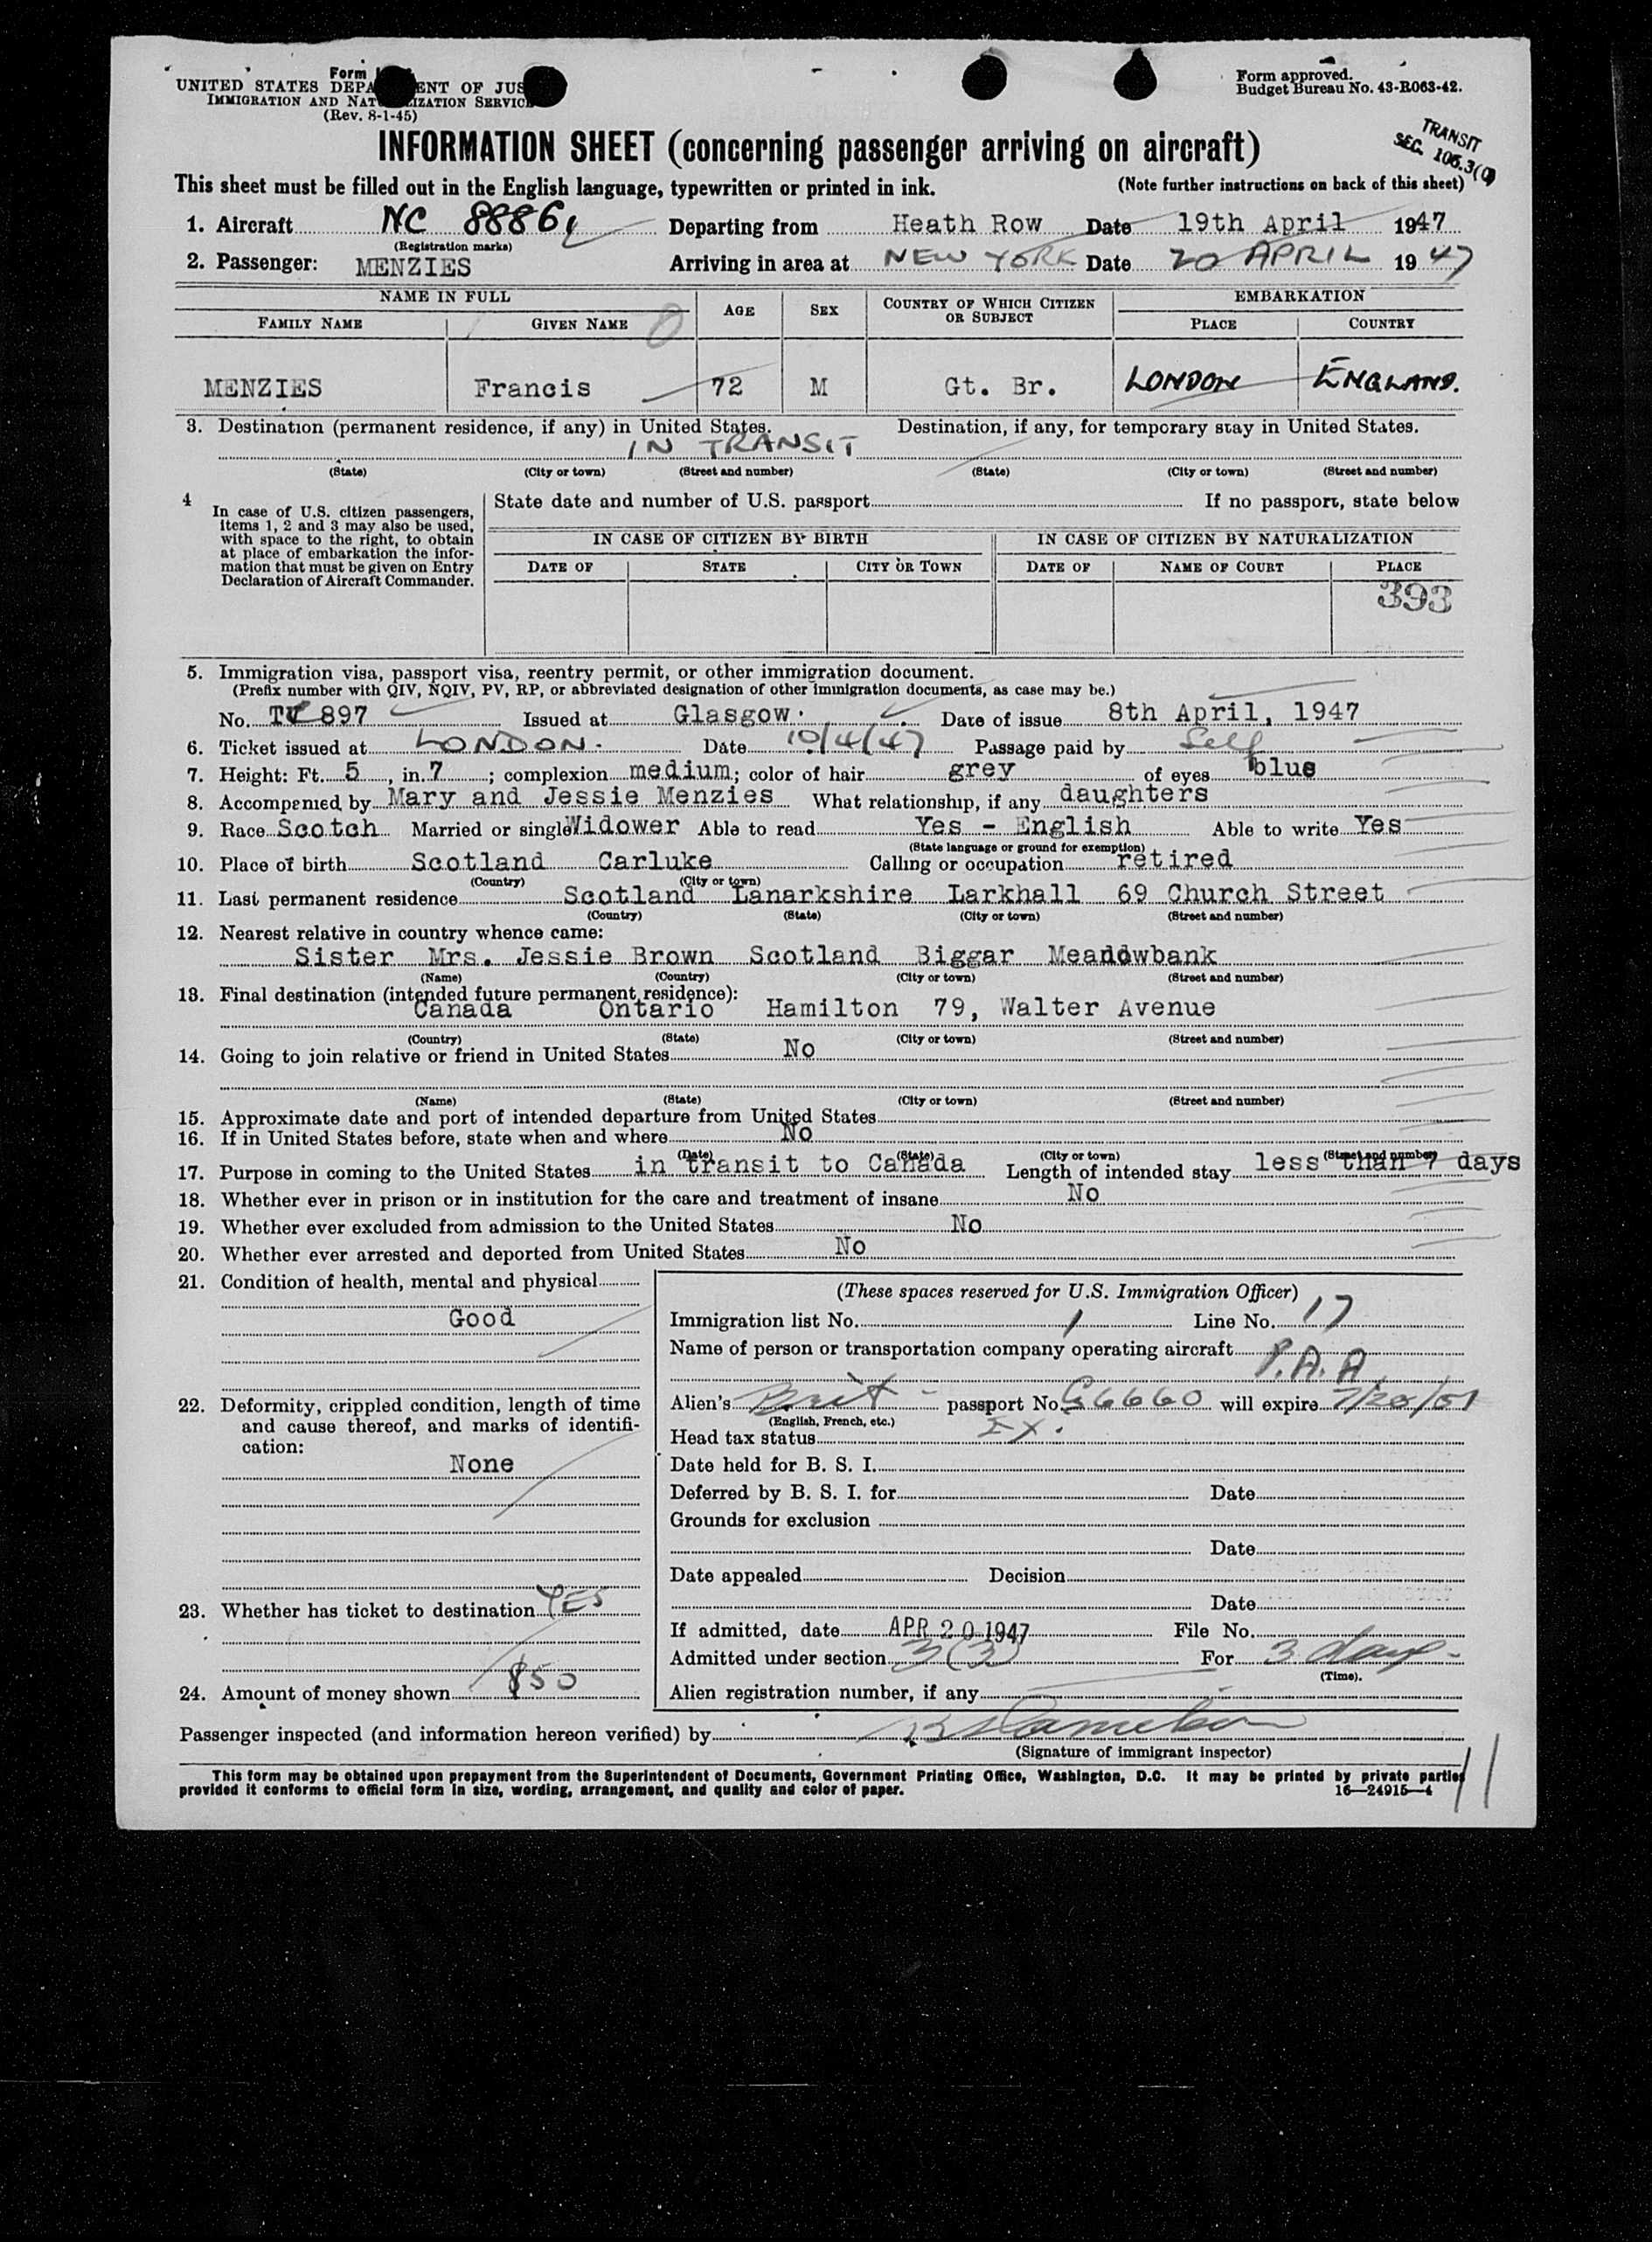 Form
UNITED STATES DEPA ENT OF JUS
IMMIGRATION AND NAT IZATION SERVICE
(Rev. 8-1-45)
Form approved.
Budget Bureau No. 43-R063-42.
TRANSIT
SEC. 106.3(
INFORMATION SHEET (concerning passenger arriving on aircraft)
This sheet must be filled out in the English language, typewritten or printed in ink. (Note further instructions on back of this sheet)
1. Aircraft NC 8886 Departing from Heath Row Date 19th April 1947
(Registration marks)
2. Passenger: MENZIES Arriving in area at NEW YORK Date 20 APRIL 1947
NAME IN FULL AGE SEX COUNTRY OF WHICH CITIZEN OR SUBJECT EMBARKATION
FAMILY NAME GIVEN NAME PLACE COUNTRY
MENZIES Francis 72 M Gt. Br. LONDON ENGLAND.
3. Destination (permanent residence, if any) in United States. Destination, if any, for temporary stay in United States.
IN TRANSIT
(State) (City or town) (Street and number) (State) (City or town) (Street and number)
4 In case of U.S. citizen passengers, items 1, 2 and 3 may also be used, with space to the right, to obtain at place of embarkation the information that must be given on Entry Declaration of Aircraft Commander.
State date and number of U.S. passport If no passport, state below
IN CASE OF CITIZEN BY BIRTH IN CASE OF CITIZEN BY NATURALIZATION
DATE OF STATE CITY OR TOWN DATE OF NAME OF COURT PLACE
393
5. Immigration visa, passport visa, reentry permit, or other immigration document.
(Prefix number with QIV, NQIV, PV, RP, or abbreviated designation of other immigration documents, as case may be.)
No. 897 Issued at Glasgow. Date of issue 8th April, 1947
6. Ticket issued at LONDON. Date 10/4/47 Passage paid by Self
7. Height: Ft. 5, in. 7; complexion medium; color of hair grey of eyes blue
8. Accompanied by Mary and Jessie Menzies What relationship, if any daughters
9. Race Scotch Married or single Widower Able to read Yes - English Able to write Yes
(State language or ground for exemption)
10. Place of birth Scotland Carluke Calling or occupation retired
(Country) (City or town)
11. Last permanent residence Scotland Lanarkshire Larkhall 69 Church Street
(Country) (State) (City or town) (Street and number)
12. Nearest relative in country whence came:
Sister Mrs. Jessie Brown Scotland Biggar Meadowbank
(Name) (Country) (City or town) (Street and number)
13. Final destination (intended future permanent residence):
Canada Ontario Hamilton 79, Walter Avenue
(Country) (State) (City or town) (Street and number)
14. Going to join relative or friend in United States No
(Name) (State) (City or town) (Street and number)
15. Approximate date and port of intended departure from United States
16. If in United States before, state when and where No
(Date) (State) (City or town) (Street and number)
17. Purpose in coming to the United States in transit to Canada Length of intended stay less than 7 days
18. Whether ever in prison or in institution for the care and treatment of insane No
19. Whether ever excluded from admission to the United States No
20. Whether ever arrested and deported from United States No
21. Condition of health, mental and physical
Good
22. Deformity, crippled condition, length of time
and cause thereof, and marks of identifi-
cation:
None
23. Whether has ticket to destination YES
24. Amount of money shown $50
(These spaces reserved for U.S. Immigration Officer)
Immigration list No. 1 Line No. 17
Name of person or transportation company operating aircraft P.A.A.
Alien's Brit - passport No. G6660 will expire 7/20/51
(English, French, etc.)
Head tax status EX.
Date held for B. S. I.
Deferred by B. S. I. for Date
Grounds for exclusion
Date
Date appealed Decision
Date
If admitted, date APR 20 1947 File No.
Admitted under section 3(3) For 3 days
(Time).
Alien registration number, if any
Passenger inspected (and information hereon verified) by
(Signature of immigrant inspector)
This form may be obtained upon prepayment from the Superintendent of Documents, Government Printing Office, Washington, D.C. It may be printed by private parties
provided it conforms to official form in size, wording, arrangement, and quality and color of paper. 16—24915—4